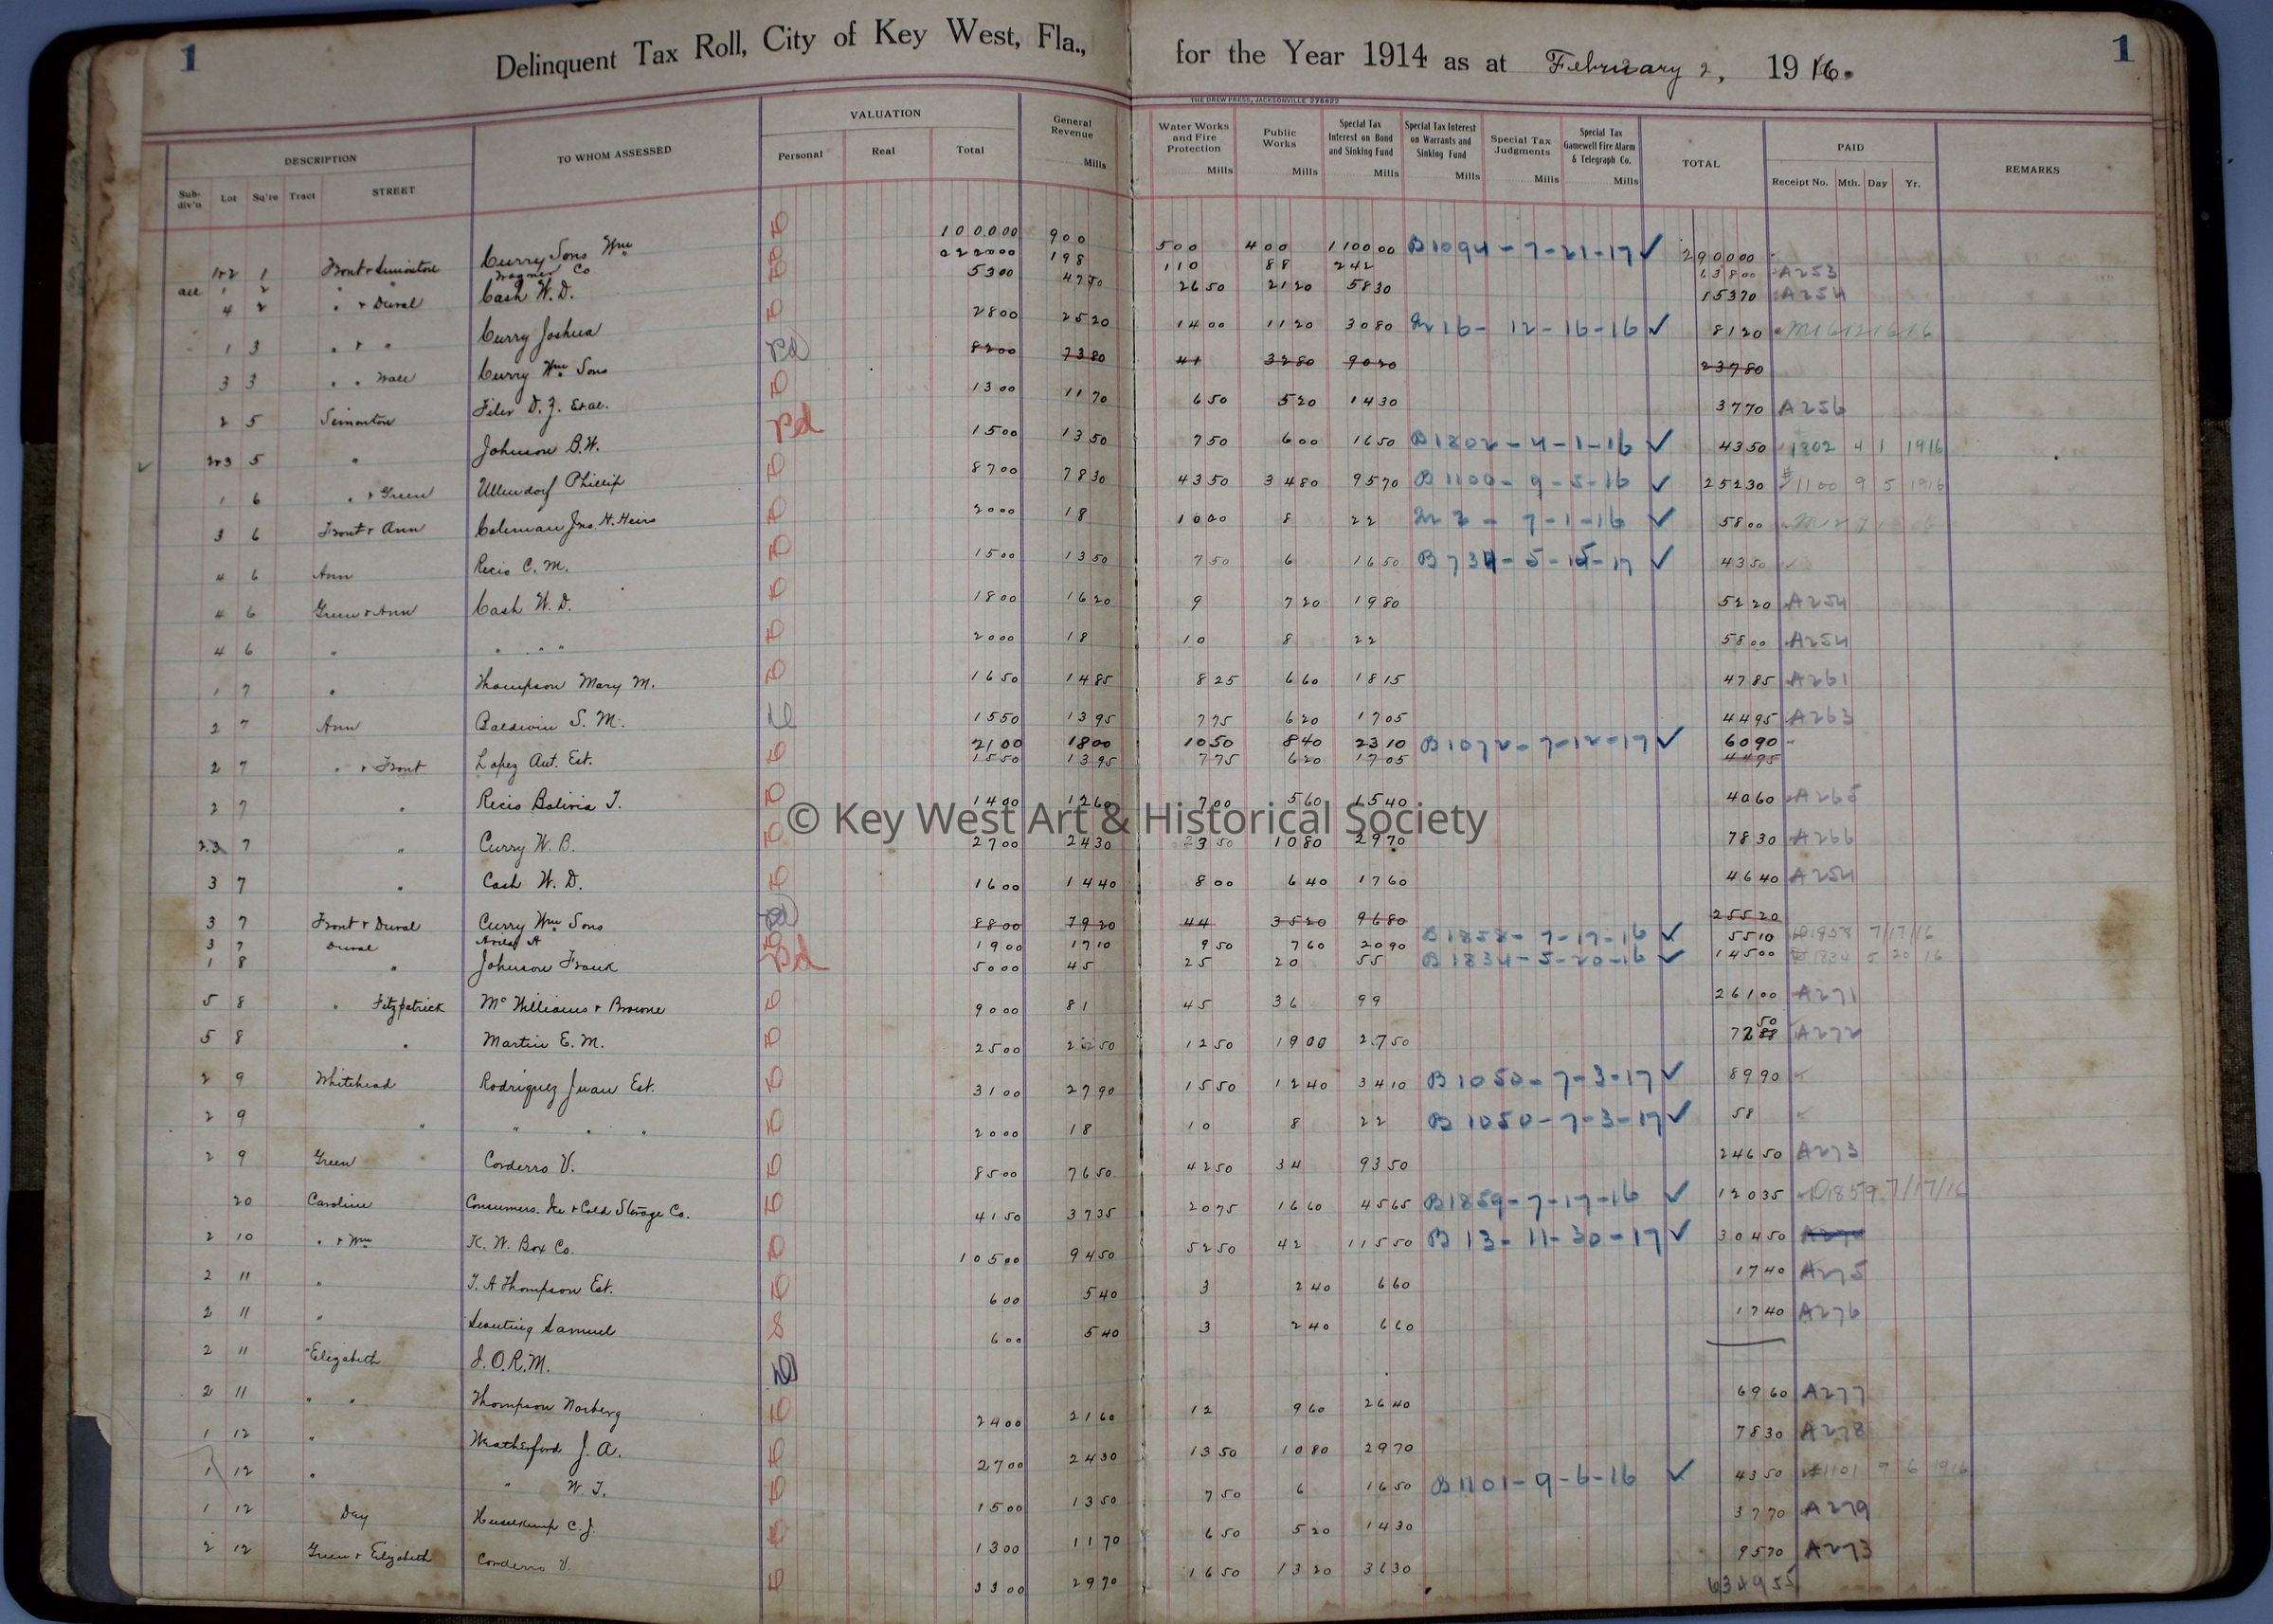 1 Delinquent Tax Roll, City of Key West, Fla., for the Year 1914 as at February 2, 1916. 1
THE DREW PRESS, JACKSONVILLE 276622
DESCRIPTION TO WHOM ASSESSED VALUATION General Revenue Mills Water Works and Fire Protection Mills Public Works Mills Special Tax Interest on Bond and Sinking Fund Mills Special Tax Interest on Warrants and Sinking Fund Mills Special Tax Judgments Mills Special Tax Gamewell Fire Alarm & Telegraph Co. Mills TOTAL PAID REMARKS
Sub-div'n Lot Sq're Tract STREET Personal Real Total Receipt No. Mth. Day Yr.
1+2 1 Front & Simonton Curry Sons Wm D 100000 900 500 400 110000 B1094-7-21-17 ✓ 290000
all 1 2 " " Wagner Co D 22000 198 110 88 242 63800 A253
4 2 " & Duval Cash W. D. D 5300 4770 2650 2120 5830 15370 A254
1 3 " + " Curry Joshua D 2800 2520 1400 1120 3080 216-12-16-16 ✓ 8120
3 3 " " Wall Curry Wm Sons Pd 8200 7380 41 3280 9020 23780
2 5 Simonton Filer D. J. Et al. D 1300 1170 650 520 1430 3770 A256
2+3 5 " Johnson B. W. Pd 1500 1350 750 600 1650 B1802-4-1-16 ✓ 4350 1802 4 1 1916
1 6 " & Green Ullendorf Phillip D 8700 7830 4350 3480 9570 B1100-9-5-16 ✓ 25230 1100 9 5 1916
3 6 Front & Ann Coleman Jno. H. Heirs D 2000 18 1000 8 22 2-7-1-16 ✓ 5800
4 6 Ann Recio C. M. D 1500 1350 750 6 1650 B734-5-15-17 ✓ 4350
4 6 Green & Ann Cash W. D. D 1800 1620 9 720 1980 5220 A254
4 6 " " " " D 2000 18 10 8 22 5800 A254
1 7 " Thompson Mary M. D 1650 1485 825 660 1815 4785 A261
2 7 Ann Baldwin S. M. 1550 1395 775 620 1705 4495 A263
2100 1800 1050 840 2310 B1072-7-12-17 ✓ 6090
2 7 " & Front Lopez Ant. Est. D 1550 1395 775 620 1705 4495
2 7 " Recio Bolivia T. D 1400 1260 700 560 1540 4060 A265
© Key West Art & Historical Society
2.3 7 " Curry W. B. D 2700 2430 50 1080 2970 7830 A266
3 7 " Cash W. D. D 1600 1440 800 640 1760 4640 A254
3 7 Front & Duval Curry Wm Sons 8800 7920 44 3520 9680 25520
3 7 Duval Aviles A D 1900 1710 950 760 2090 B1858-7-17-16 ✓ 5510 1858 7/17/16
1 8 " Johnson Frank Pd 5000 45 25 20 55 B1834-5-20-16 ✓ 14500 1834 5 20 16
5 8 " Fitzpatrick McWilliams & Browne D 9000 81 45 36 99 26100 A271
5 8 " Martin E. M. D 2500 2250 1250 1000 2750 7250 A272
2 9 Whitehead Rodriguez Juan Est. D 3100 2790 1550 1240 3410 B1050-7-3-17 ✓ 8990
2 9 " " " " D 2000 18 10 8 22 B1050-7-3-17 ✓ 58
2 9 Green Corderro V. D 8500 7650 4250 34 9350 24650 A273
20 Caroline Consumers. Ice & Cold Storage Co. D 4150 3735 2075 1660 4565 B1859-7-17-16 ✓ 12035 1859 7/17/16
2 10 " & Wm K. W. Box Co. D 10500 9450 5250 42 11550 B13-11-30-17 ✓ 30450
2 11 " T. A Thompson Est. D 600 540 3 240 660 1740 A275
2 11 " Samuel S 600 540 3 240 660 1740 A276
2 11 " Elizabeth I. O. R. M. D
2 11 " " Thompson Norberg D 2400 2160 12 960 2640 6960 A277
1 12 " Weatherford J. A. D 2700 2430 1350 1080 2970 7830 A278
1 12 " " W. T. D 1500 1350 750 6 1650 B1101-9-6-16 ✓ 4350 1101 9 6 1916
1 12 Dey C. J. D 1300 1170 650 520 1430 3770 A279
2 12 Green & Elizabeth Corderro V. D 3300 2970 1650 1320 3630 9570 A273
634955